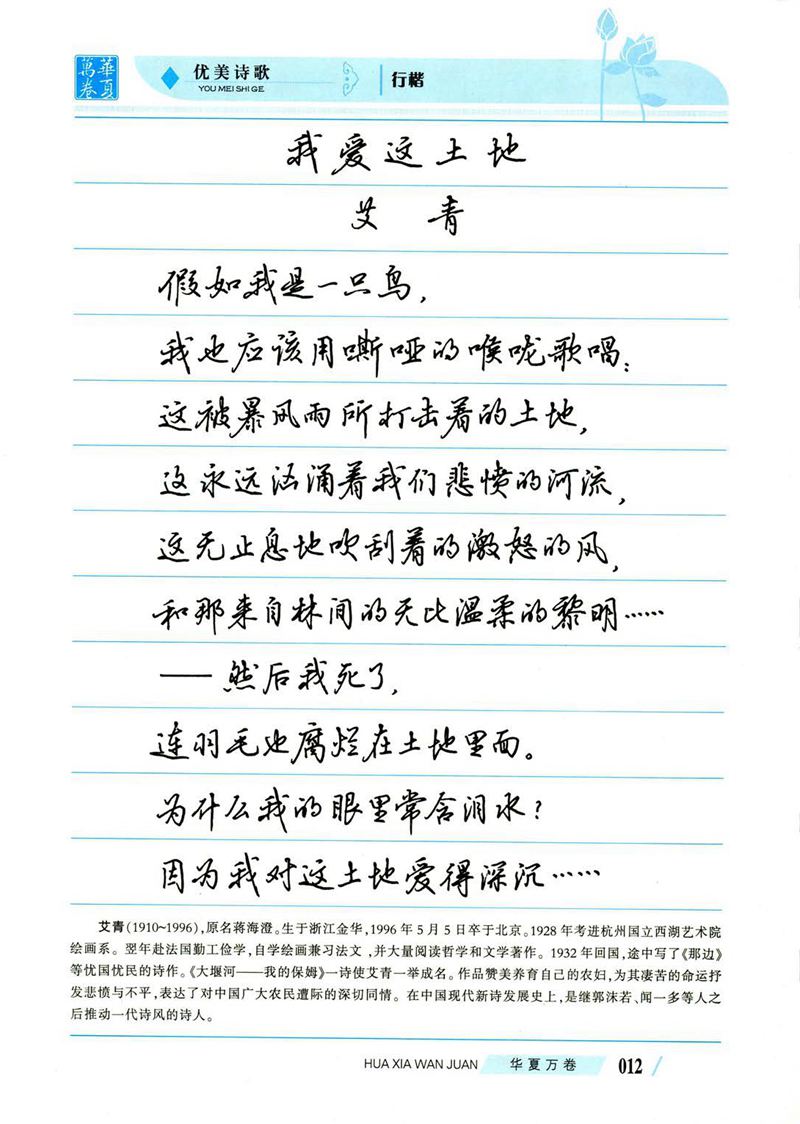 華夏萬卷
优美诗歌
YOU MEI SHI GE
行楷
我爱这土地
艾 青
假如我是一只鸟，
我也应该用嘶哑的喉咙歌唱：
这被暴风雨所打击着的土地，
这永远汹涌着我们悲愤的河流，
这无止息地吹刮着的激怒的风，
和那来自林间的无比温柔的黎明……
——然后我死了，
连羽毛也腐烂在土地里面。
为什么我的眼里常含泪水？
因为我对这土地爱得深沉……
艾青(1910~1996)，原名蒋海澄。生于浙江金华，1996年5月5日卒于北京。1928年考进杭州国立西湖艺术院
绘画系。翌年赴法国勤工俭学，自学绘画兼习法文，并大量阅读哲学和文学著作。1932年回国，途中写了《那边》
等忧国忧民的诗作。《大堰河——我的保姆》一诗使艾青一举成名。作品赞美养育自己的农妇，为其凄苦的命运抒
发悲愤与不平，表达了对中国广大农民遭际的深切同情。在中国现代新诗发展史上，是继郭沫若、闻一多等人之
后推动一代诗风的诗人。
HUA XIA WAN JUAN
华夏万卷
012